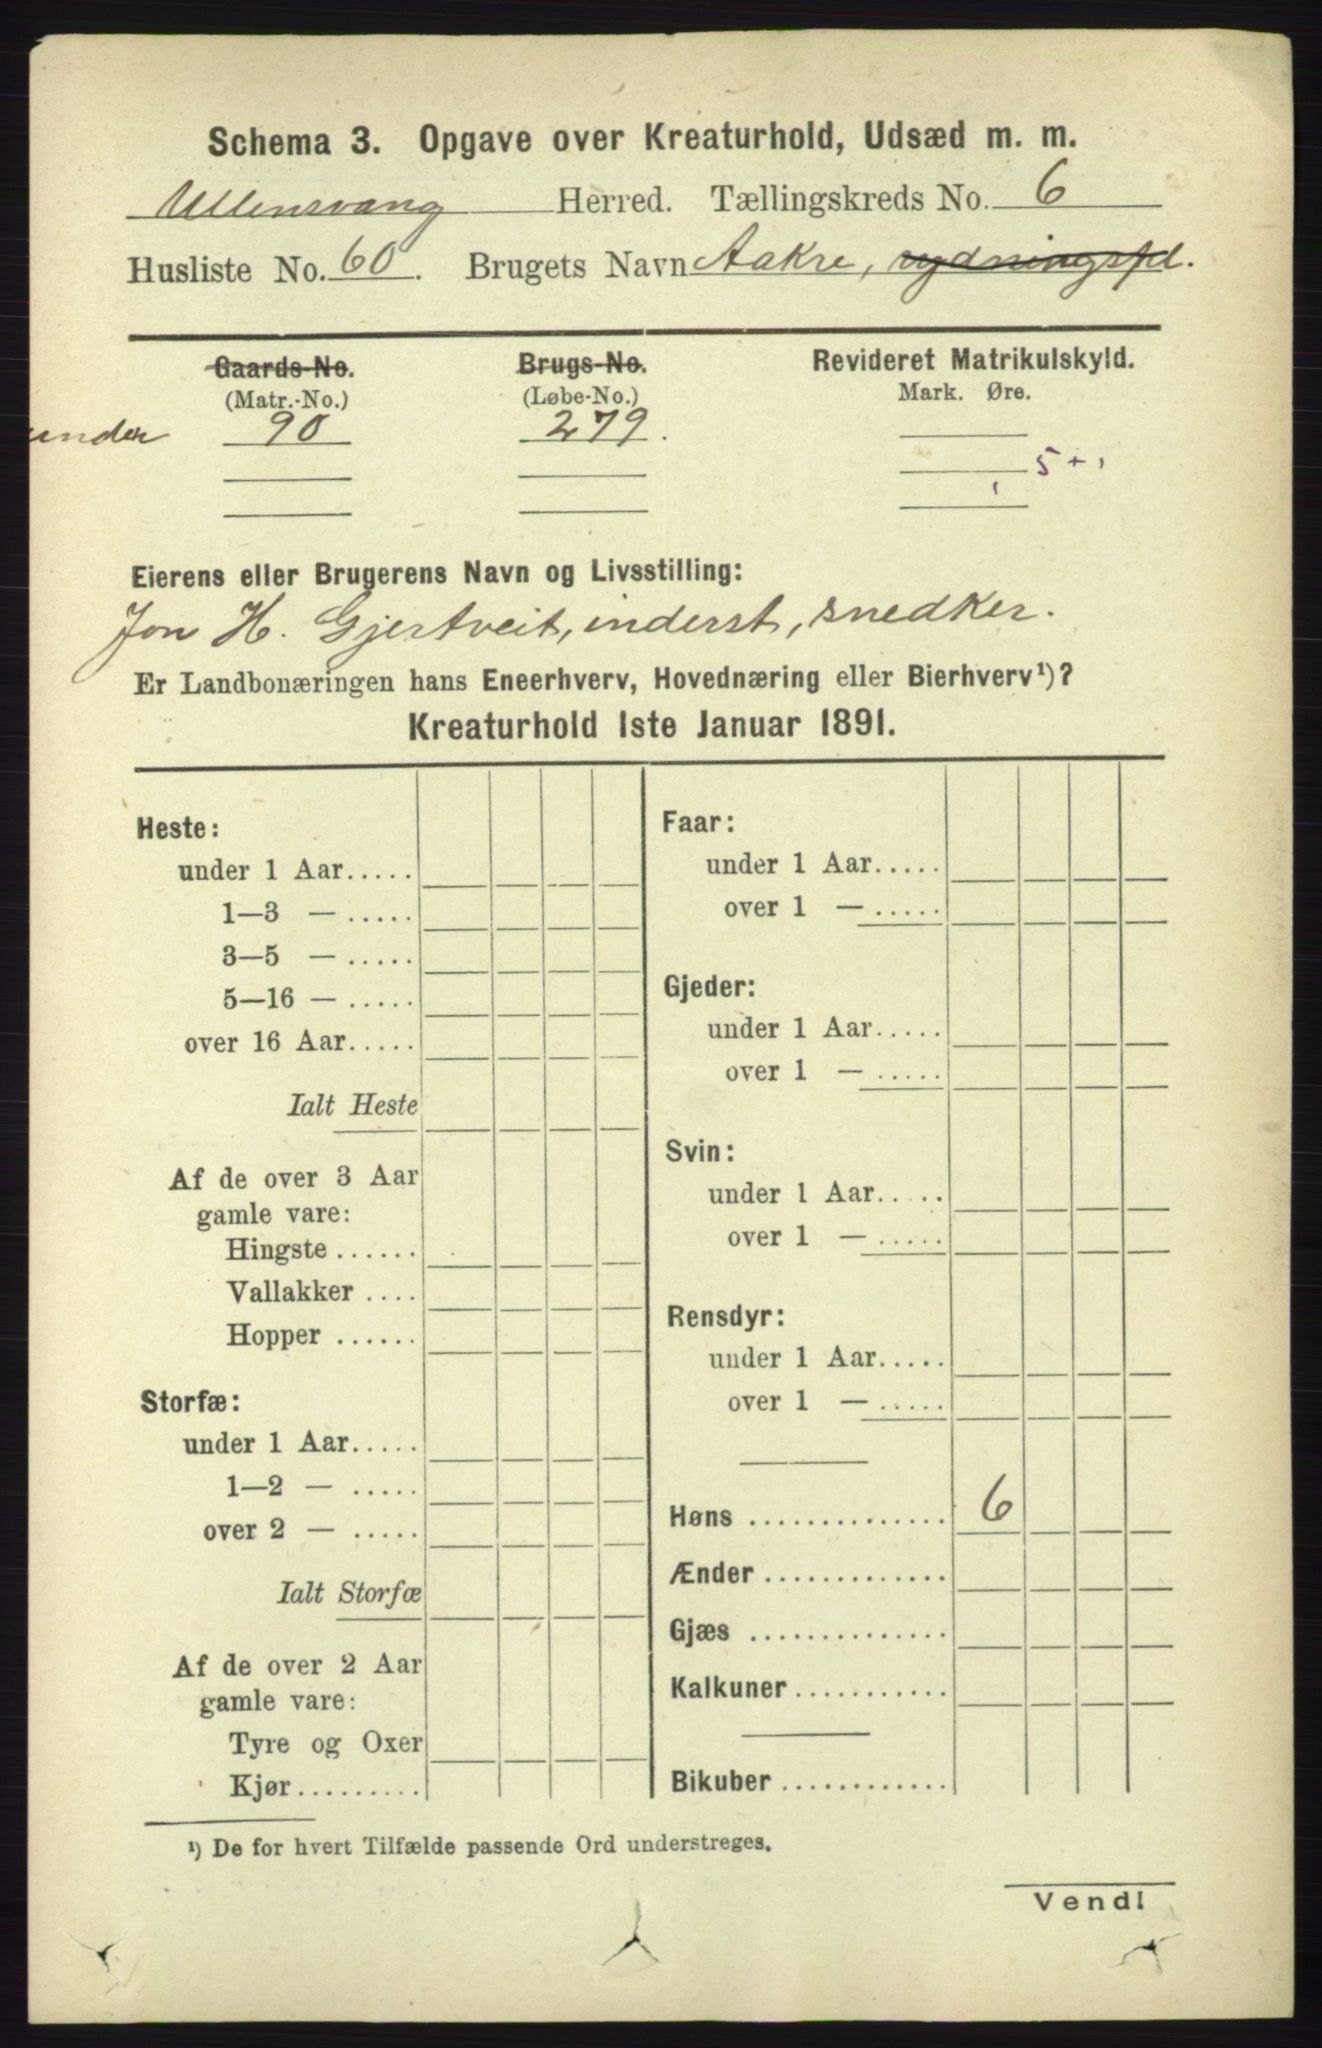 Schema 3. Opgave over Kreaturhold, Udsæd m. m.
Ullensvang Herred. Tællingskreds No. 6
Husliste No. 60. Brugets Navn Aakre, rydningspl.
Gaards-No. Brugs-No. Revideret Matrikulskyld.
(Matr.-No.) (Løbe-No.) Mark. Øre.
under 90 279.
5 +
Eierens eller Brugerens Navn og Livsstilling:
Jon H. Gjertveit, inderst, snedker.
Er Landbonæringen hans Eneerhverv, Hovednæring eller Bierhverv¹)?
Kreaturhold 1ste Januar 1891.
Heste:
under 1 Aar.....
1—3 — .....
3—5 — .....
5—16 — .....
over 16 Aar.....
Ialt Heste
Af de over 3 Aar
gamle vare:
Hingste ......
Vallakker ....
Hopper ......
Storfæ:
under 1 Aar.....
1—2 — .....
over 2 — .....
Ialt Storfæ
Af de over 2 Aar
gamle vare:
Tyre og Oxer
Kjør.........
Faar:
under 1 Aar.....
over 1 — .....
Gjeder:
under 1 Aar.....
over 1 — .....
Svin:
under 1 Aar.....
over 1 — .....
Rensdyr:
under 1 Aar.....
over 1 — .....
Høns .............. 6
Ænder .............
Gjæs ..............
Kalkuner...........
Bikuber ............
¹) De for hvert Tilfælde passende Ord understreges.
Vend!